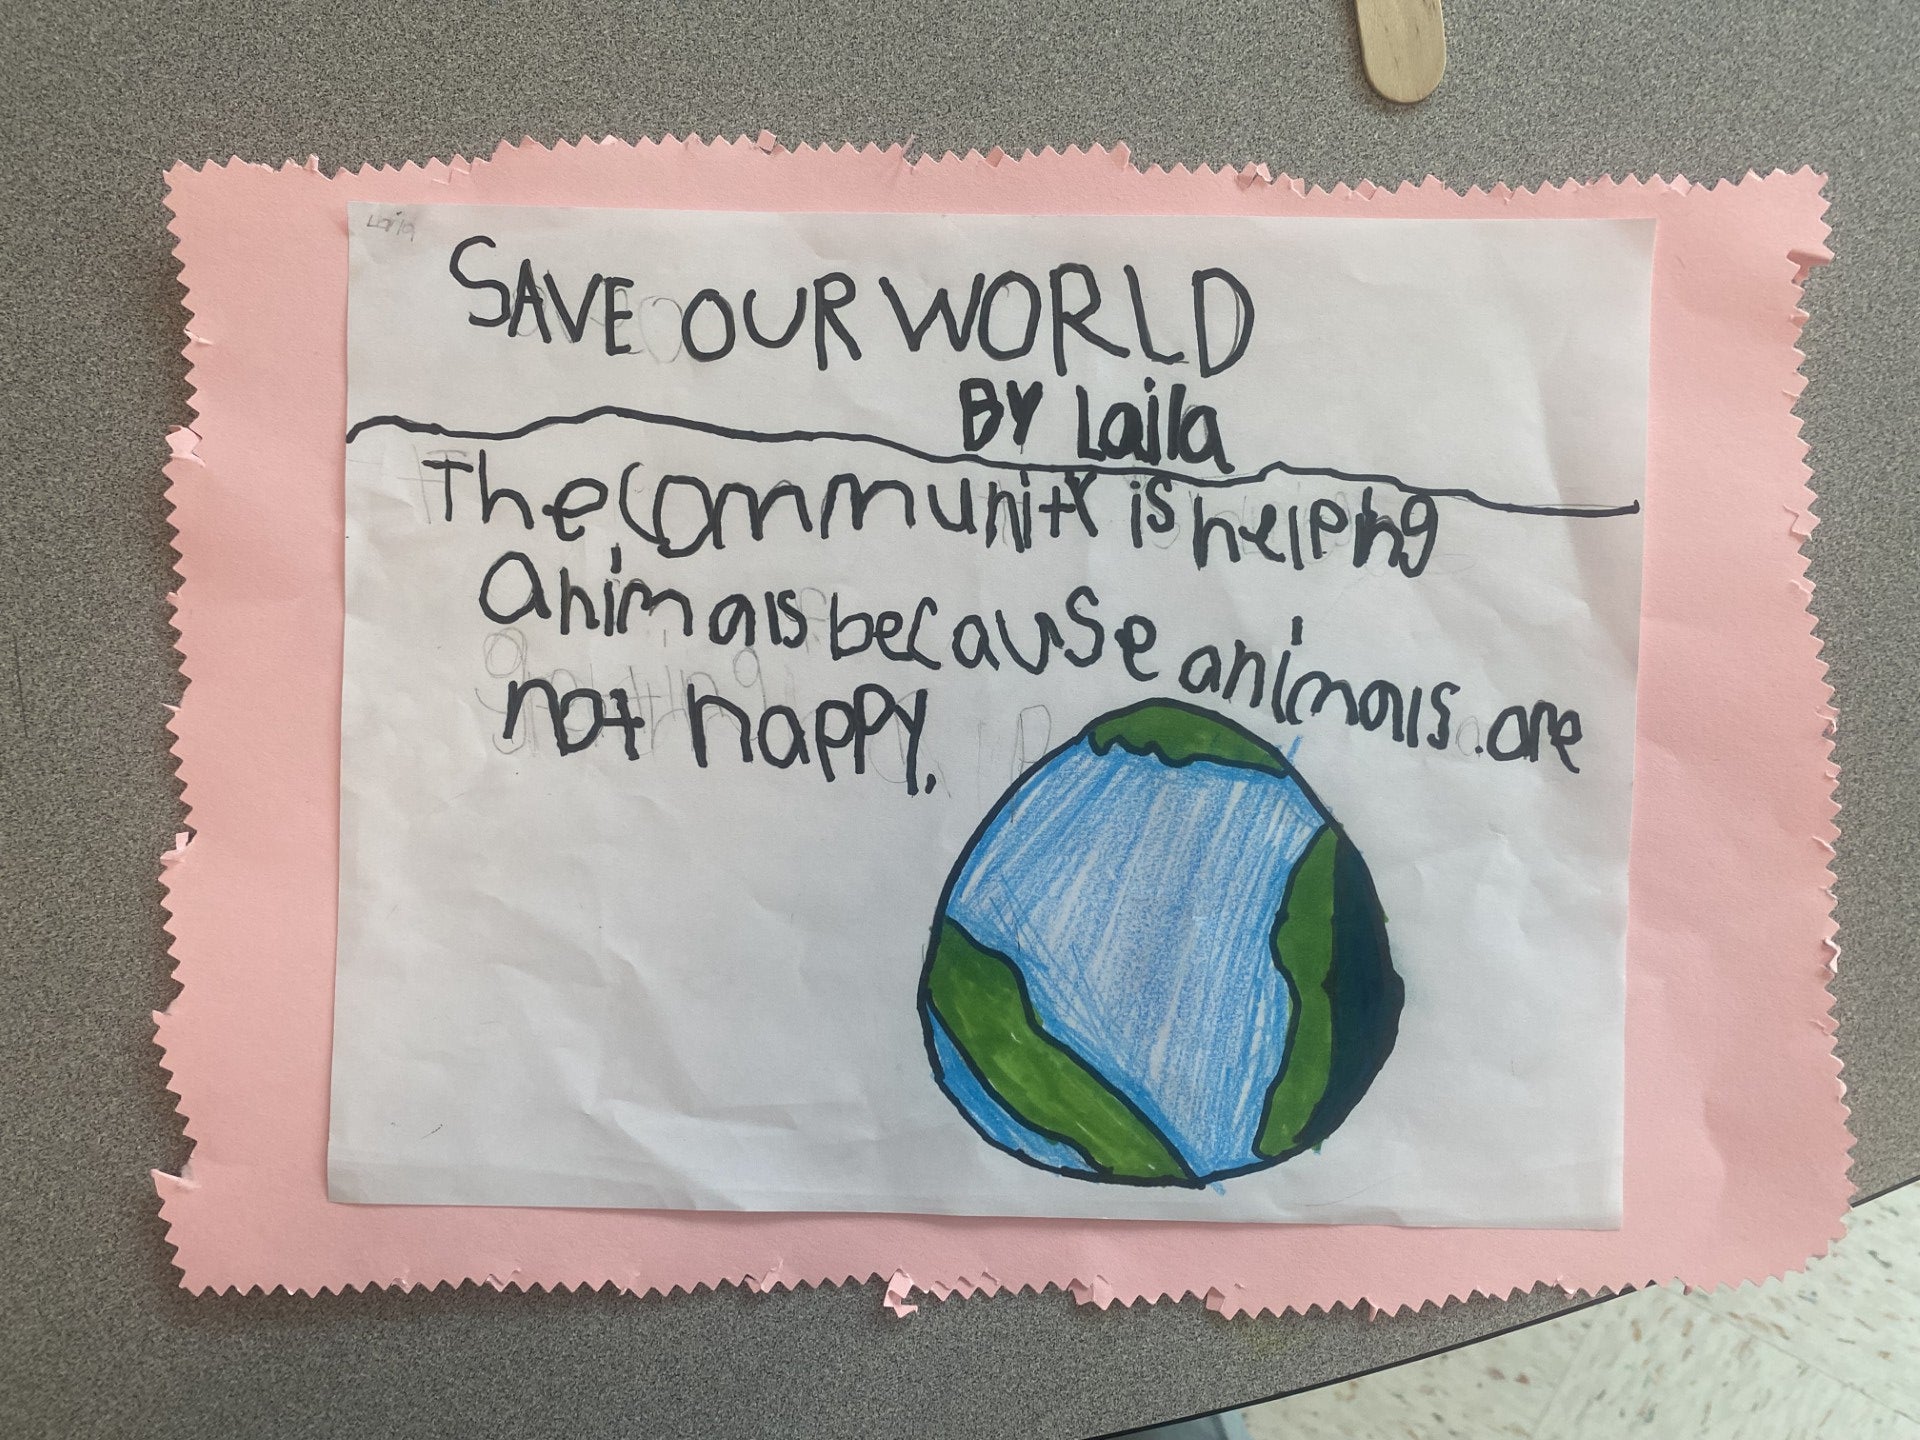 Laila
SAVE OUR WORLD
BY Laila
The community is helping
animals because animals are
not happy.